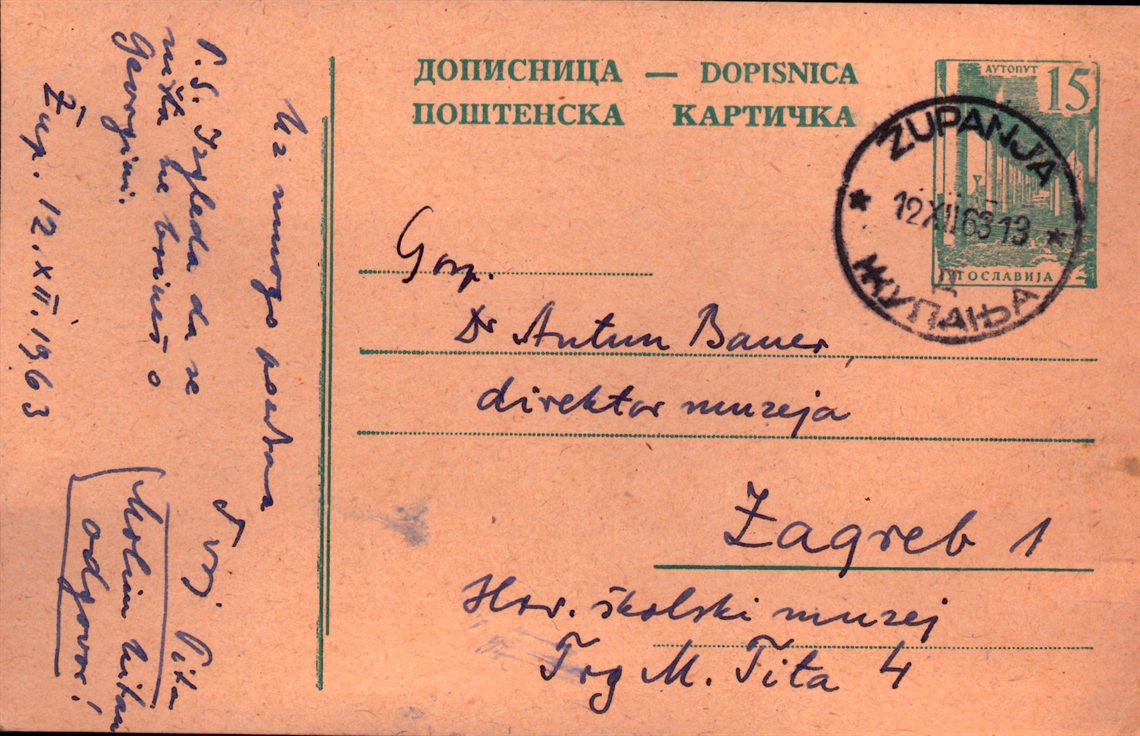 ДОПИСНИЦА — DOPISNICA
ПОШТЕНСКА КАРТИЧКА
АУТОПУТ
15
ЈУГОСЛАВИЈА
ŽUPANJA
12 XII 63 13
Д
ЖУПАЊА
Gosp.
Dr Antun Bauer,
direktor muzeja
Zagreb 1
Hrv. školski muzej
Trg M. Tita 4
Uz mnogo
Tvoj Pita
P.S. Izgleda da se
ništa ne brineš o
Žup. 12.XII.1963
Molim hitan
odgovor!